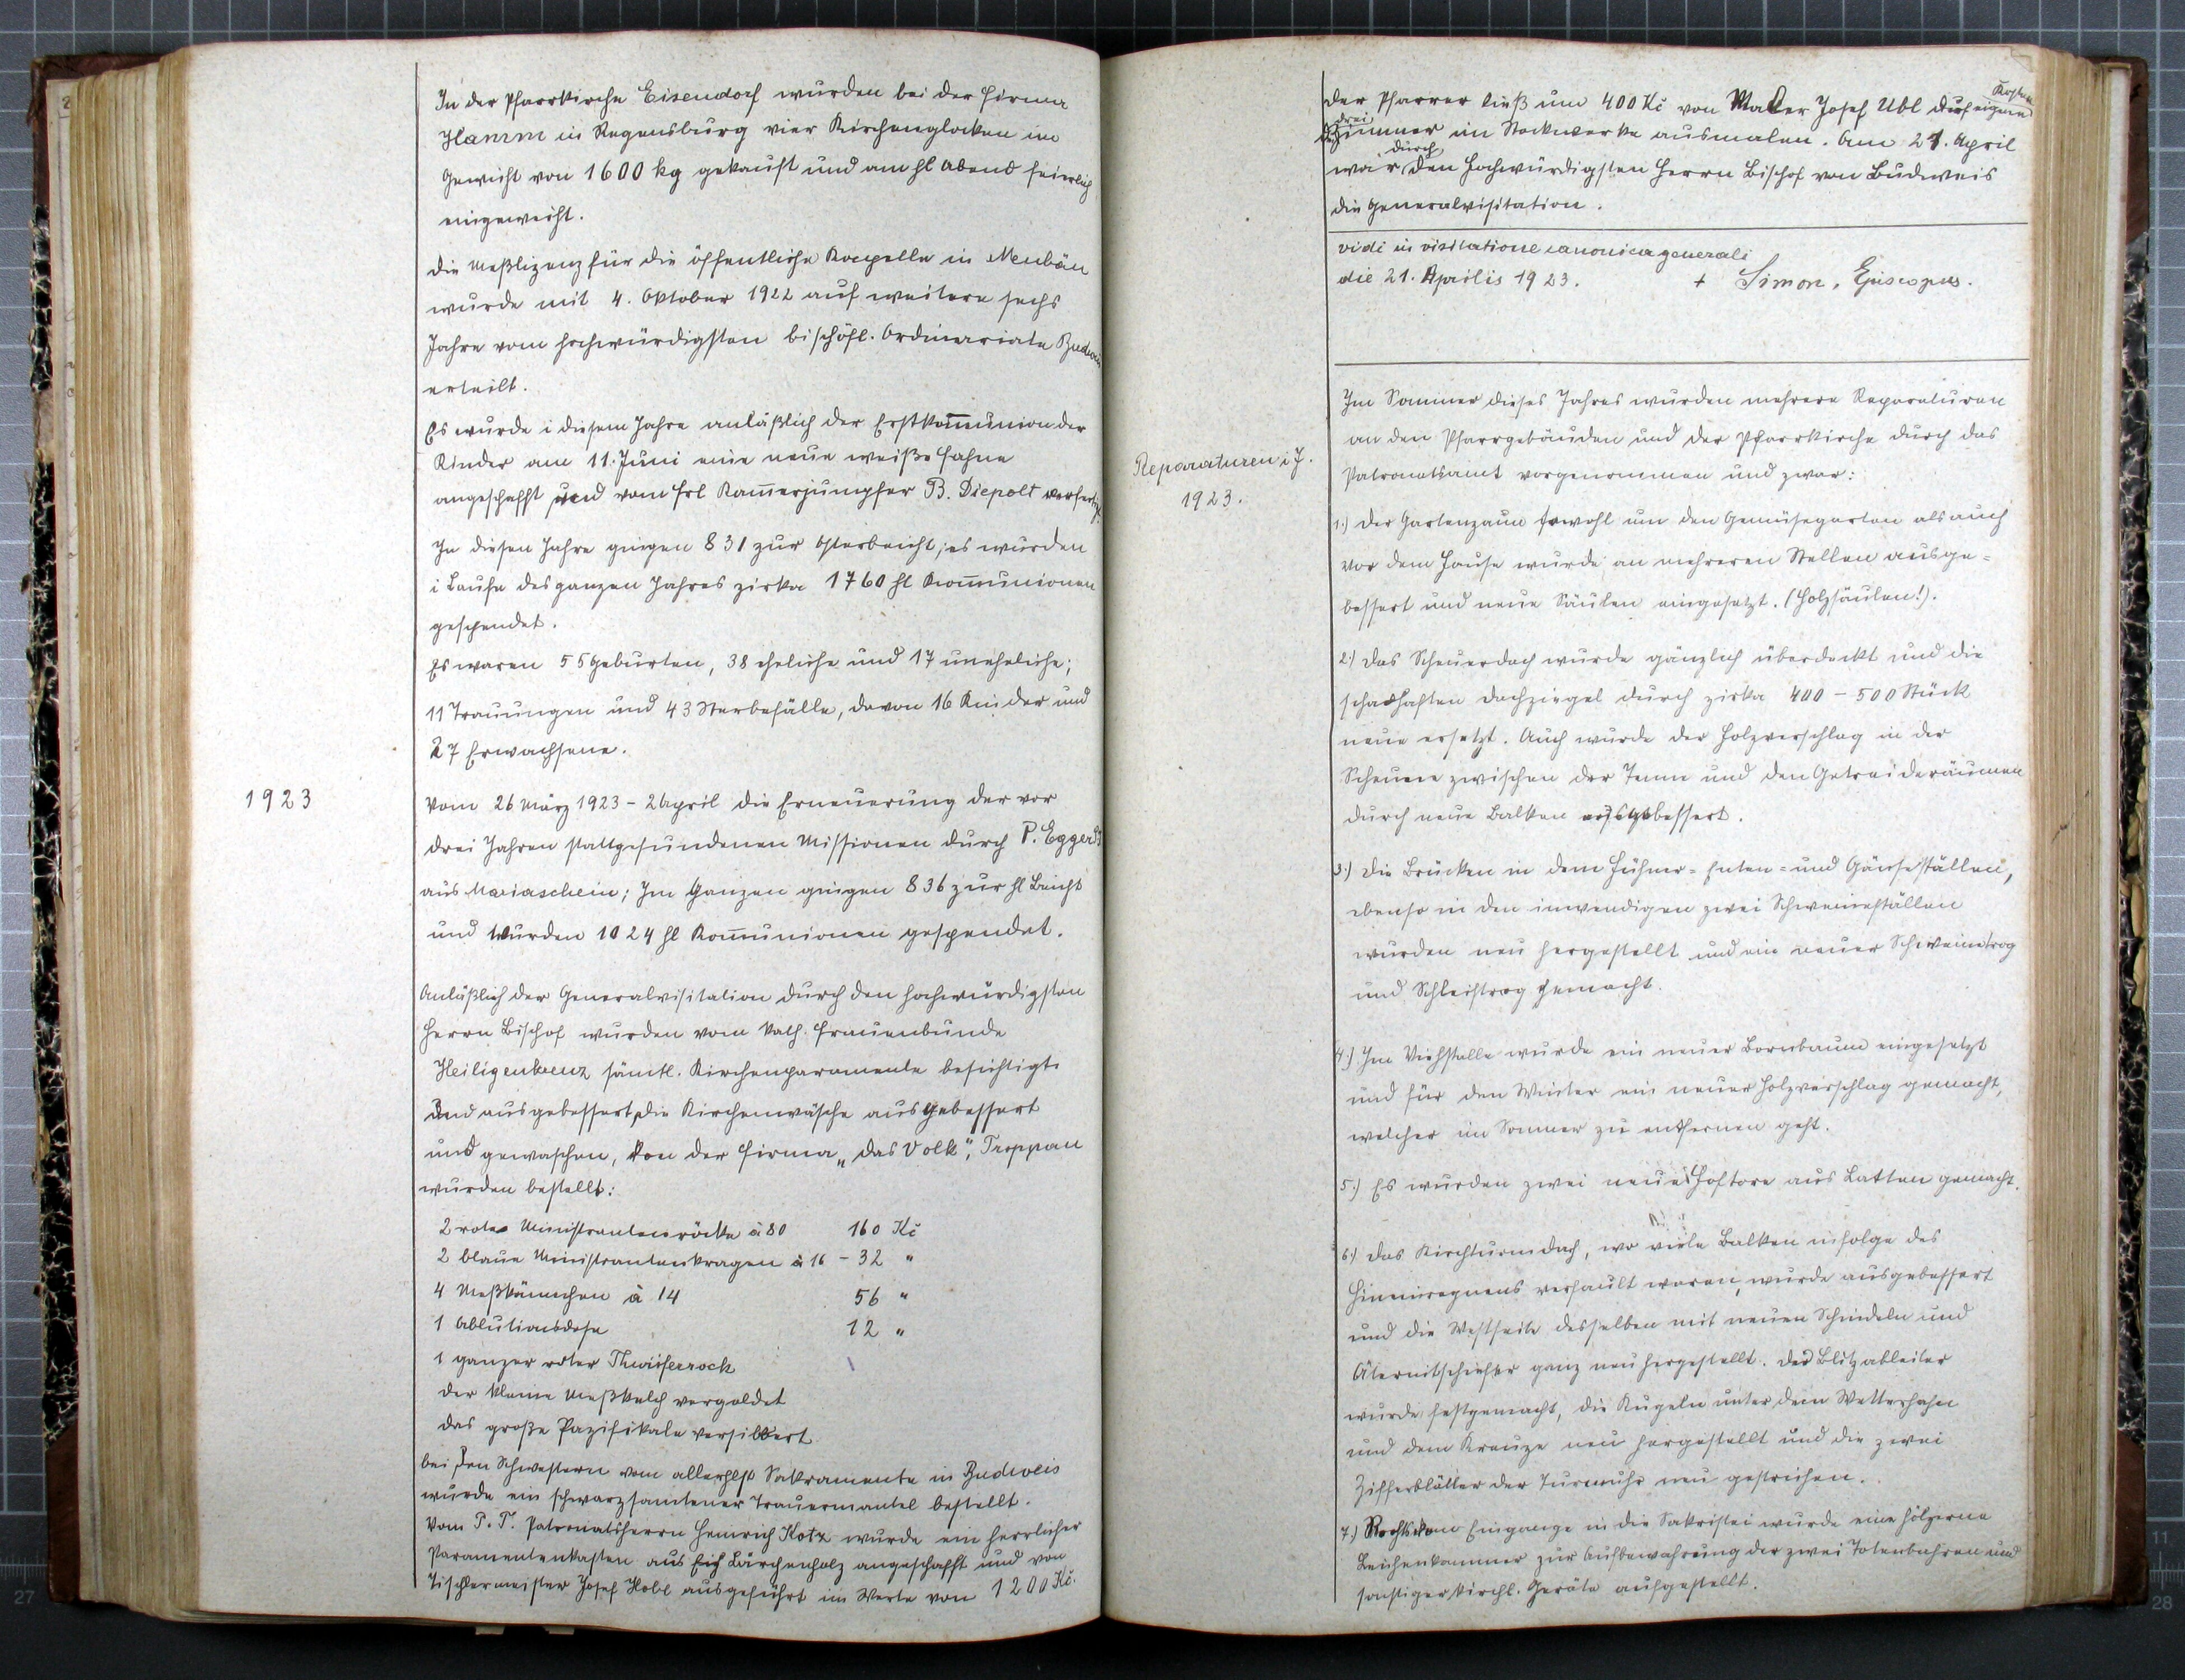 In der Pfarrkirche Eisendorf wurden bei der Firma
Hamm in Regensburg vier Kirchenglocken im
Gewicht von 1600 kg gekauft und am hl Abend feierlich
eingeweiht.
Die Meßlizenz für die öffentliche Kapelle in Neubäu
wurde mit 4. Oktober 1922 auf weitere sechs
Jahre vom hochwürdigsten bischöfl. Ordinariate Budweis
erteilt.
Es wurde i diesem Jahre anläßlich der Erstkom̅union der
Kinder am 11. Juni eine neue weiße Fahne
angeschafft und vom Frl Kam̅erjumpfer B. Diepolt verfertigt.
In diesen Jahre gingen 831 zur Osterbeicht; es wurden
i Laufe des ganzen Jahres zirka 1760 hl Kom̅unionen
gespendet.
Es waren 55 Geburten, 38 eheliche und 17 uneheliche;
11 Trauungen und 43 Sterbefälle, davon 16 Kinder und
27 Erwachsene.
1923
Vom 26 März 1923 - 2 April die Erneuerung der vor
drei Jahren stattgefundenen Missionen durch P. Eggerdt
aus Mariaschein; Im Ganzen gingen 836 zur hl Beicht
und wurden 1024 hl Kom̅unionen gespendet.
Anläßlich der Generalvisitation durch den hochwürdigsten
Herrn Bischof wurden vom kath. Frauenbunde
Heiligenkreuz sämtl. Kirchenparamente besichtigt
und ausgebessert, die Kirchenwäsche ausgebessert
und gewaschen, von der Firma „Das Volk", Troppau
wurden bestellt:
2 rote Ministrantenröcke à 80 160 Kč
2 blaue Ministrantenkragen à 16 - 32 "
4 Meßkännchen à 14 56 "
1 Ablutionsdose 12 "
1 ganzer roter
der kleine Meßkelch vergoldet
das große Pazifikale versilbert
bei den Schwestern vom allerhlst Sakramente in Budweis
wurde ein schwarzsamtener Trauermantel bestellt.
Vom P. T. Patronatsherrn Heinrich Kotz wurde ein herrlicher
Paramentenkasten aus Lärchenholz angeschafft und von
Tischlermeister Josef Hobl ausgeführt im Werte von 1200 Kč.
Der Pfarrer ließ um 400 Kč von Maler Josef Ubl auf eigene Kosten
drei Zimmer im Stockwerke ausmalen. Am 21. April
war durch den hochwürdigsten Herrn Bischof von Budweis
die Generalvisitation.
vidi in visitatione canonica generali
die 21. Aprilis 1923. + Simon, Episcopus.
Reparaturen i J.
1923.
Im Sommer dieses Jahres wurden mehrere Reparaturen
an den Pfarrgebäuden und der Pfarrkirche durch das
Patronatsamt vorgenommen und zwar:
1.) Der Gartenzaun sowohl um den Gemüsegarten als auch
vor dem Hause wurde an mehreren Stellen ausge=
bessert und neue Säulen eingesetzt. (Holzsäulen!).
2.) Das Scheuerdach wurde gänzlich überdeckt und die
schadhaften Dachziegel durch zirka 400 - 500 Stück
neue ersetzt. Auch wurde der Holzverschlag in der
Scheune zwischen der Tenne und den Getreideräumen
durch neue Balken ausgebessert.
3.) Die Brücken in dem Hühner= Enten= und Gänseställen,
ebenso in den inwendigen zwei Schweineställen
wurden neu hergestellt und ein neuer Schweinetrog
und gemacht.
4.) Im Viehstalle wurde ein neuer Bornbaum eingesetzt
und für den Winter ein neuer Holzverschlag gemacht,
welcher im Sommer zu entfernen geht.
5.) Es wurden zwei neue Hoftore aus Latten gemacht.
6.) Das Kirchturmdach, wo viele Balken infolge des
Hineinregnens verfault waren, wurde ausgebessert
und die Westseite desselben mit neuen Schindeln und
Äternitschiefer ganz neu hergestellt. Der Blitzableiter
wurde festgemacht, die Kugeln unter dem Wetterhahn
und dem Kreuze neu hergestellt und die zwei
Zifferblätter der Turmuhr neu gestrichen.
7.) Rechts vom Eingange in die Sakristei wurde eine hölzerne
Leichenkammer zur Aufbewahrung der zwei Totenbahren und
sonstiger kirchl. Geräte aufgestellt.
27
11
28